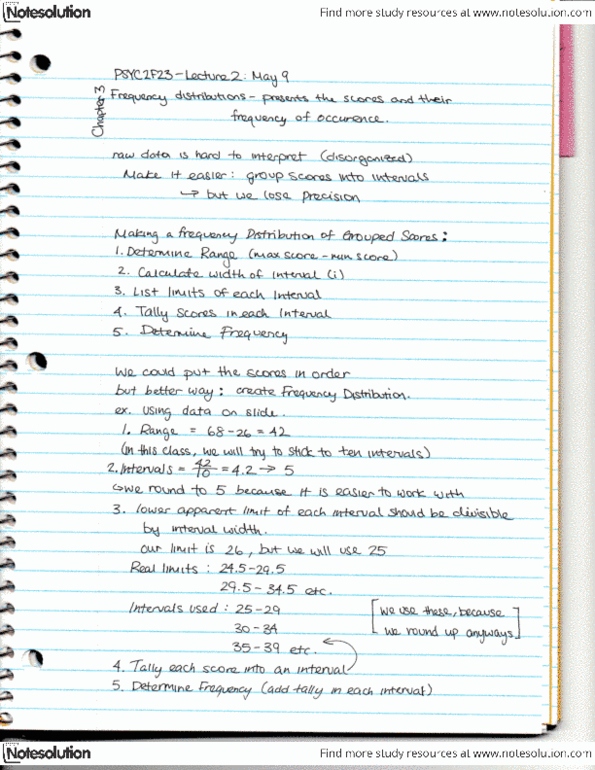 Notesolution
Find more study resources at www.notesolution.com
PSYC2F23 - Lecture 2: May 9
Chapter 3
Frequency distributions - presents the scores and their
frequency of occurence.
raw data is hard to interpret (disorganized)
Make it easier: group scores into intervals
→ but we lose precision
Making a frequency Distribution of Grouped Scores:
1. Determine Range (max score - min score)
2. Calculate width of interval (i)
3. List limits of each Interval
4. Tally scores in each Interval
5. Determine Frequency
We could put the scores in order
but better way: create Frequency Distribution.
ex. using data on slide.
1. Range = 68-26 = 42
(in this class, we will try to stick to ten intervals)
2. Intervals = 42/10 = 4.2 → 5
↳ we round to 5 because it is easier to work with
3. lower apparent limit of each interval should be divisible
by interval width.
our limit is 26, but we will use 25
Real limits: 24.5-29.5
29.5-34.5 etc.
Intervals used: 25-29
30-34
35-39 etc.
[we use these, because
we round up anyways]
4. Tally each score into an interval
5. Determine Frequency (add tally in each interval)
Notesolution
Find more study resources at www.notesolution.com